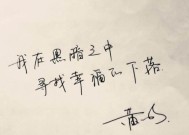 我在黑暗之中
寻找幸福的下落